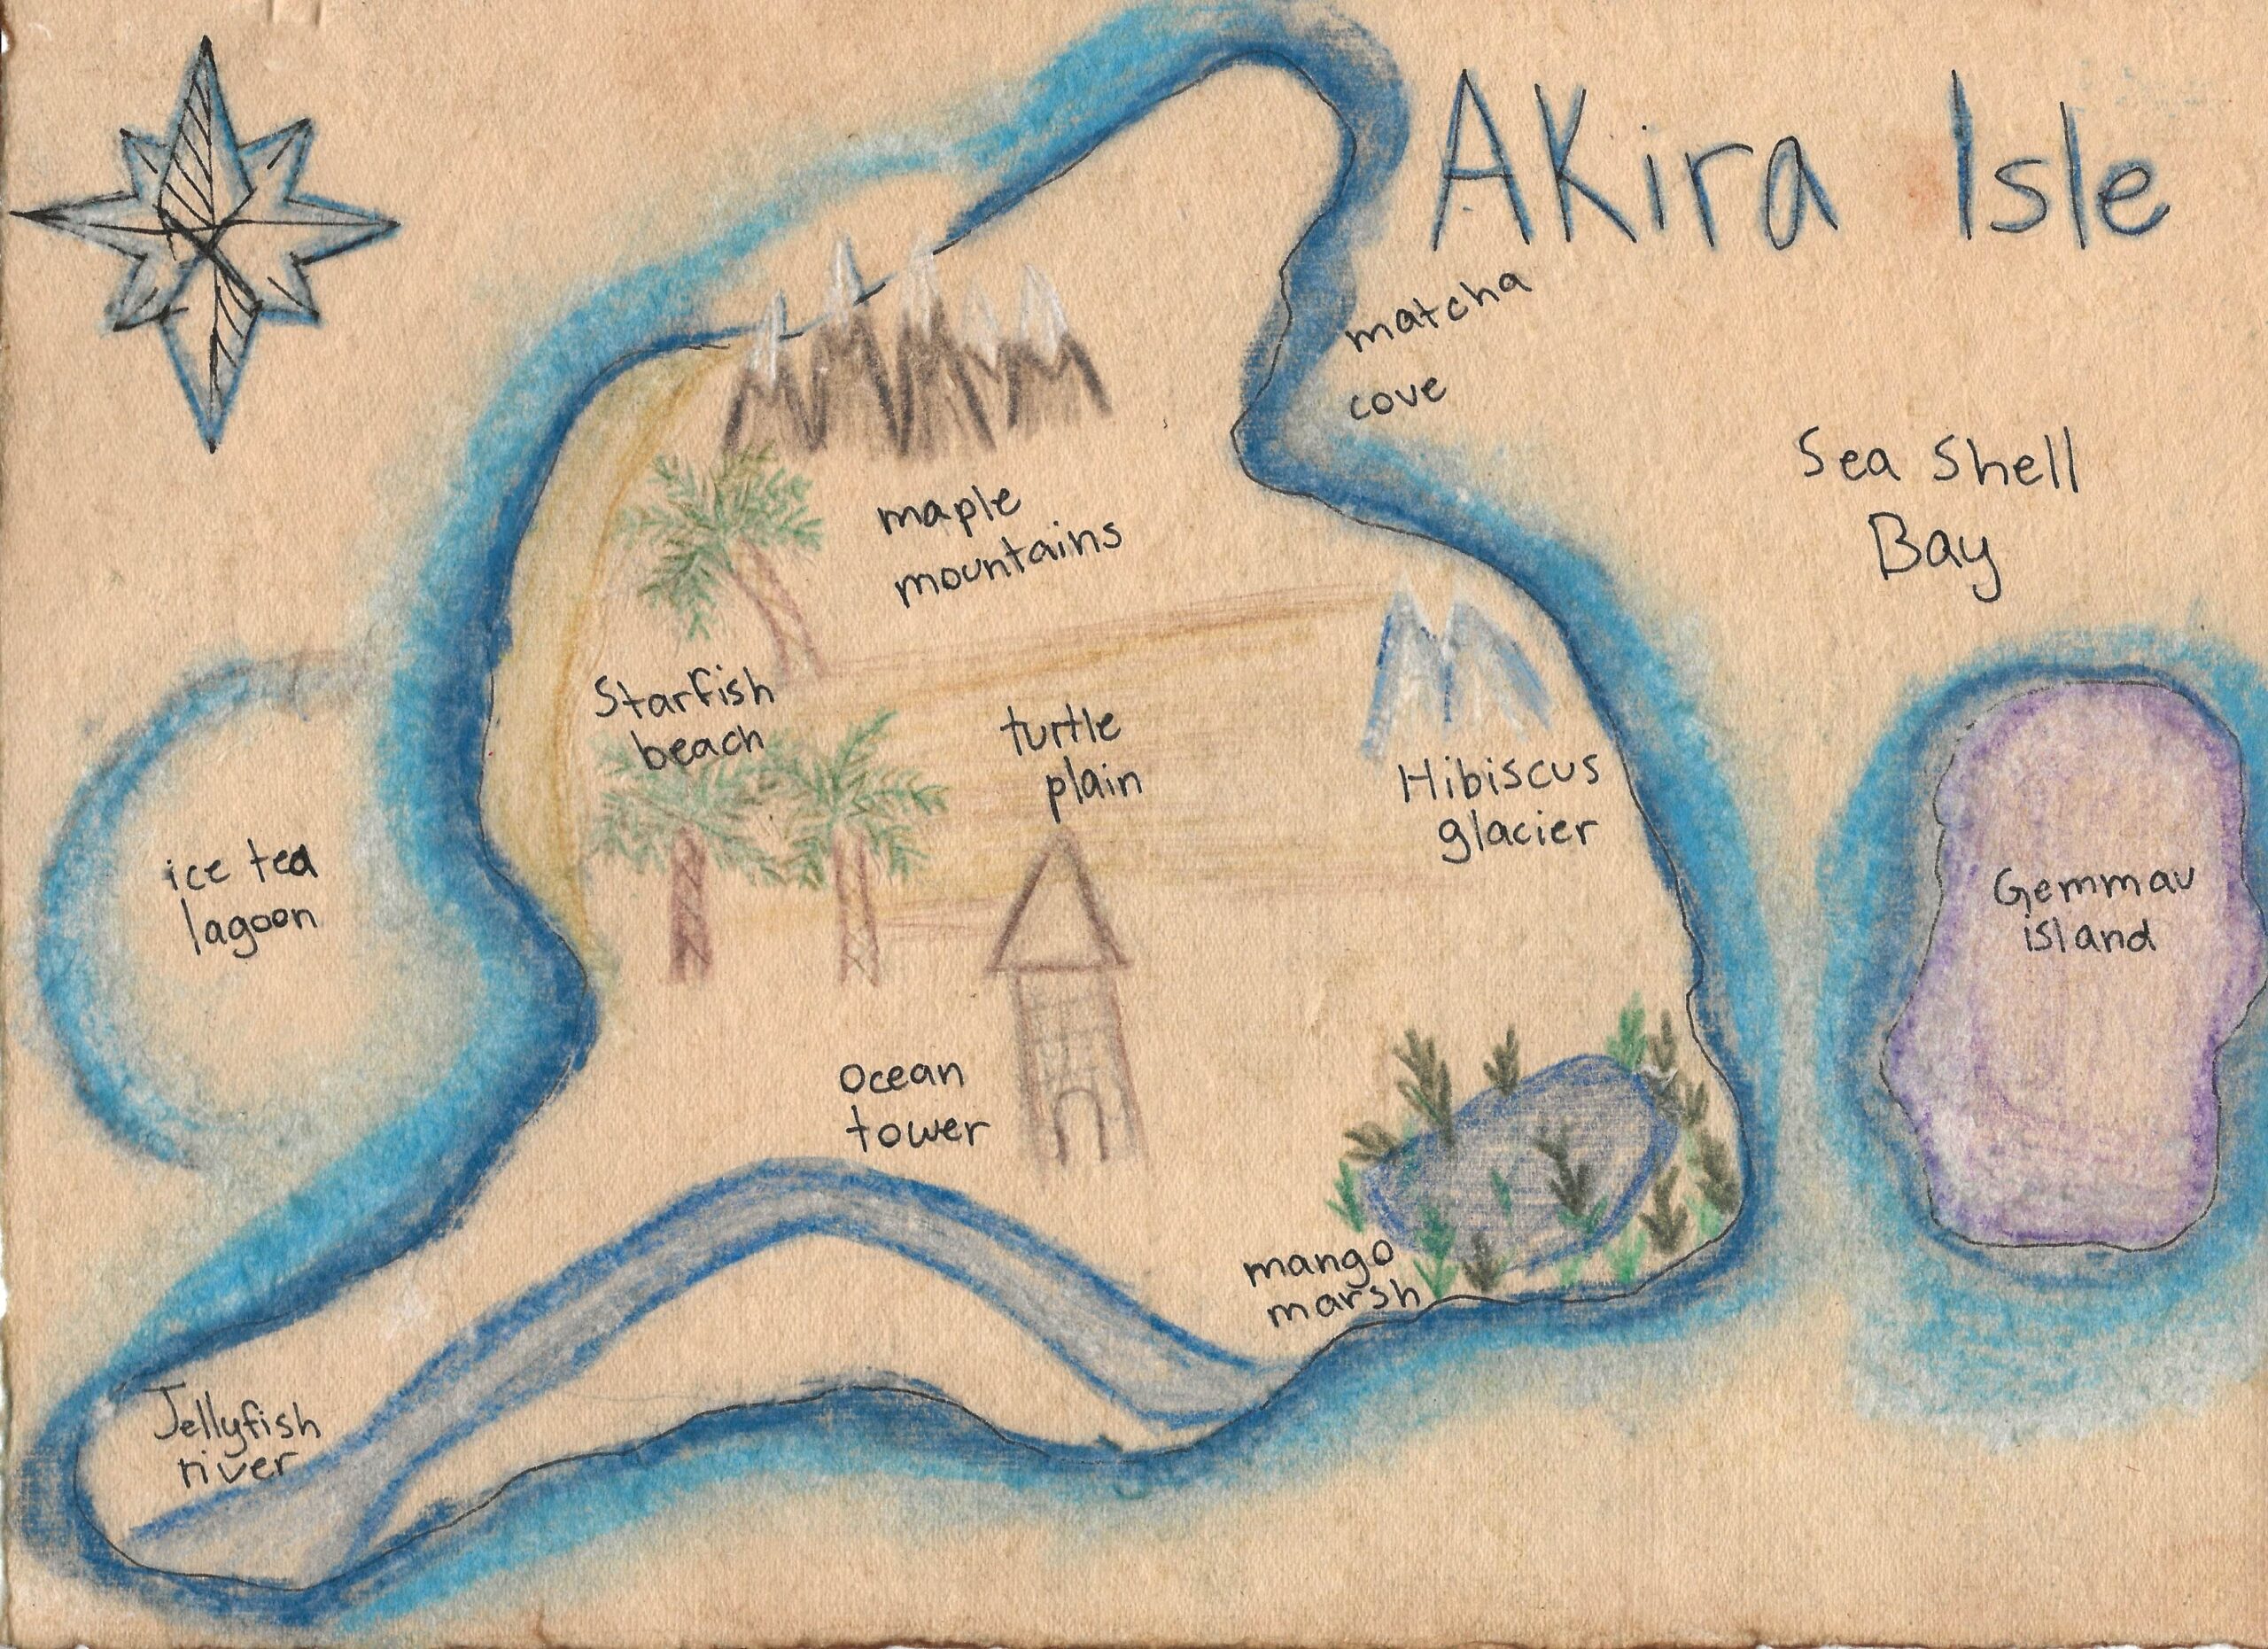 Akira Isle
matcha
cove
Sea Shell
Bay
maple
mountains
Starfish
beach
turtle
plain
Hibiscus
glacier
ice tea
lagoon
Gemmau
island
Ocean
tower
mango
marsh
Jellyfish
river